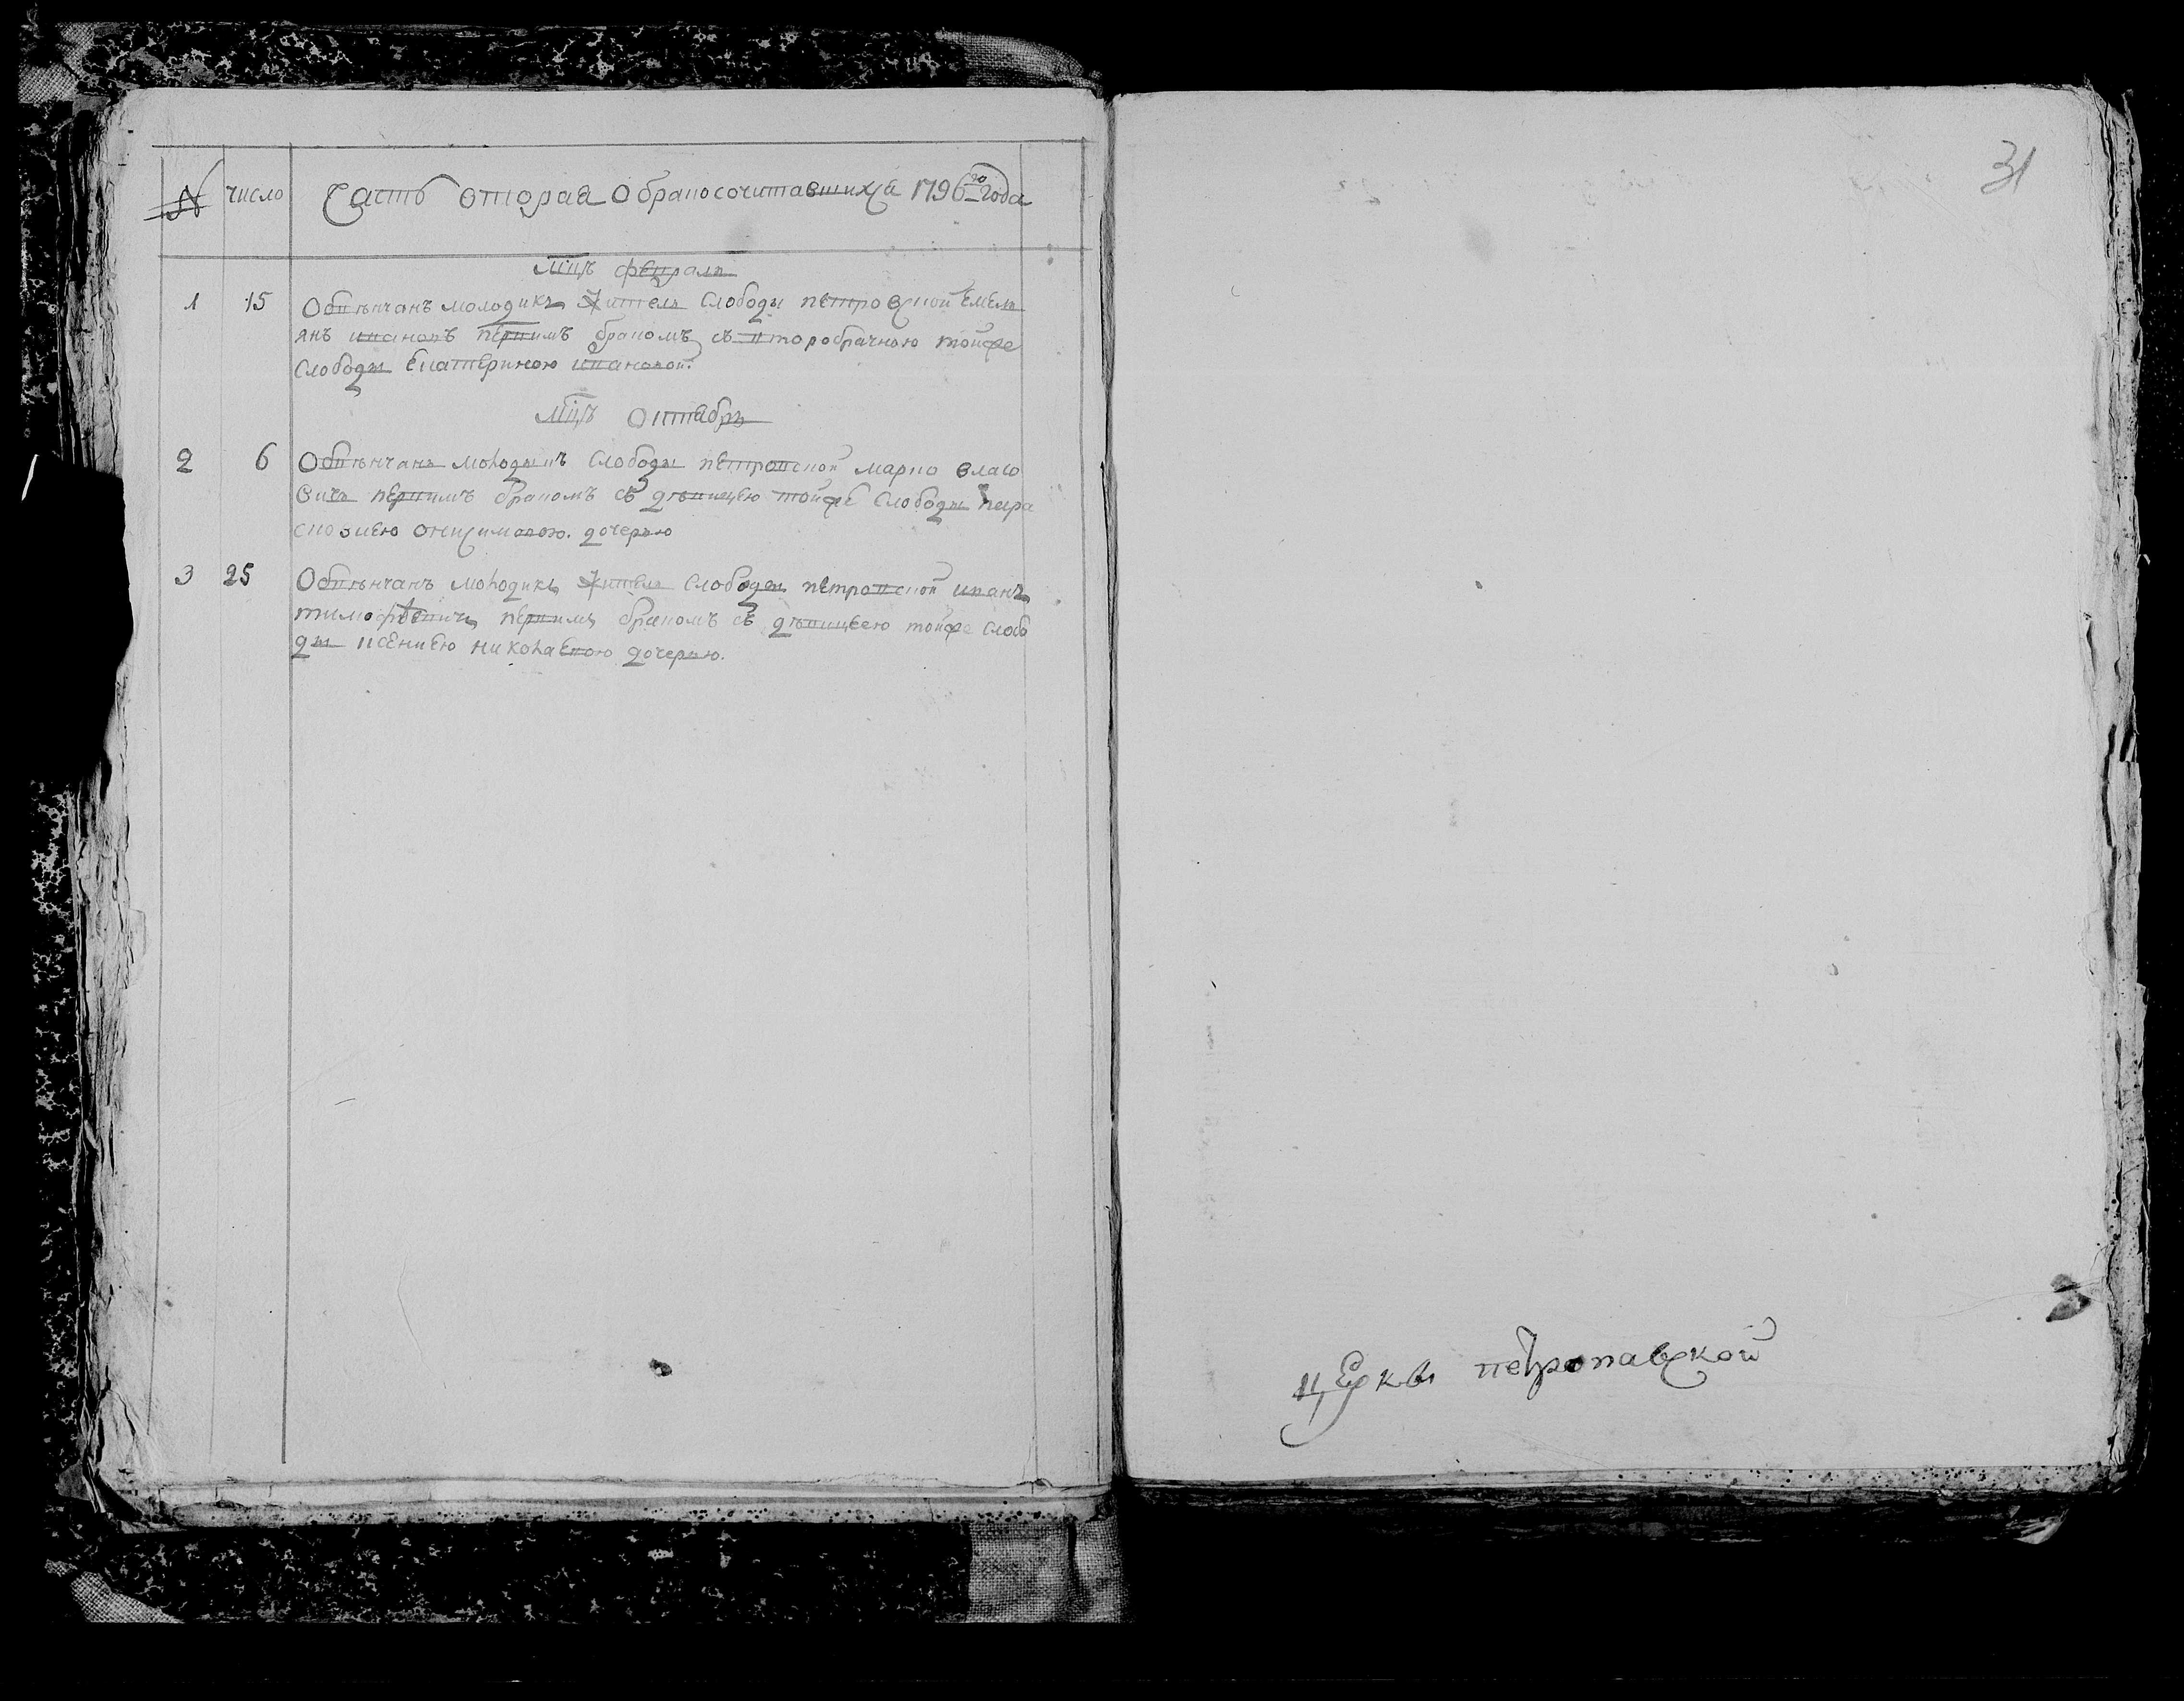 № число Часть вторая О бракосочитавшихся 1796го года
Мцъ февраль
1 15 Обвѣнчанъ молодикъ житель слободы петровской Емель
янъ ивановъ первимъ бракомъ съ второбрачною тойже
слободы Екатериною ивановой.
Мцъ Октябръ
2 6 Обвѣнчанъ молодикъ слободы петровской марко власо
вичъ первимъ бракомъ съ дѣвицею тойже слободы пара
сковиею онисимовою. дочерью
3 25 Обвѣнчанъ молодикъ житель слободы петровской иванъ
тимофѣевичъ первимъ бракомъ съ дѣвицею тойже слобо
ды ксениею николаевою дочерью.
31
церкви петропавской